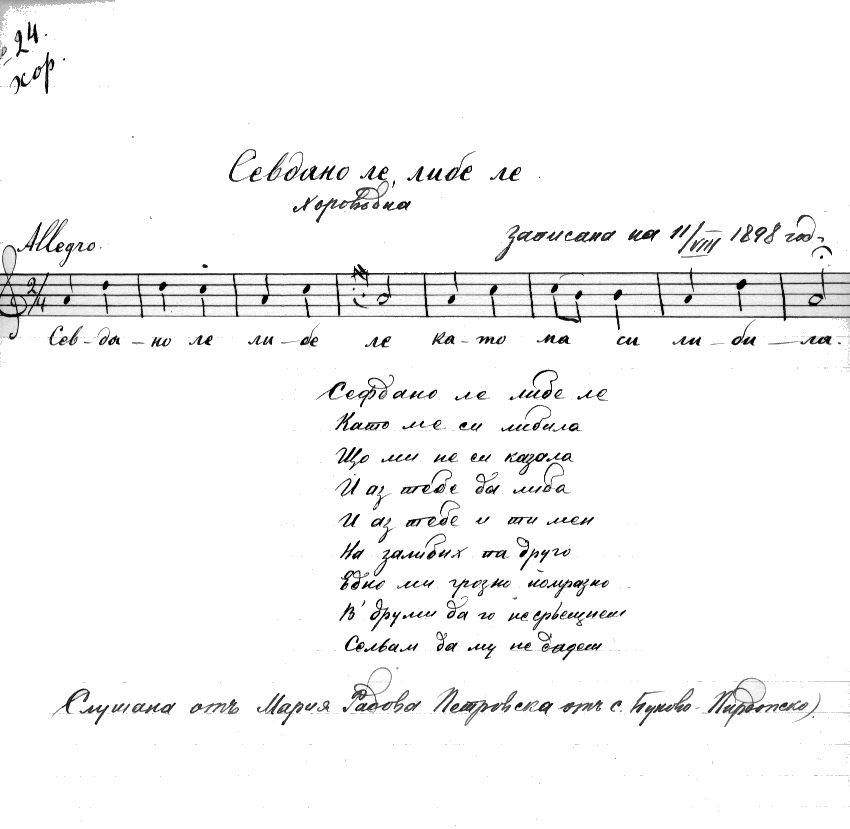 24.
хор.
Севдано ле, либе ле
Хороводна
Allegro.
Записана на 11/VIII 1898 год.
2/4
Сев-да-но ле ли-бе ле ка-то ма си ли-би-ла.
Сефдано ле либе ле
Като ме си либила
Що ми не си казала
И аз тебе да либа
И аз тебе и ти мен
На залибих та друго
Едно ми грозно помразно
В' друми да го несрьещнеш
Селвам да му не дадеш
Слушана отъ Мария Радова Петровска отъ с. Буново - Пирдопско)